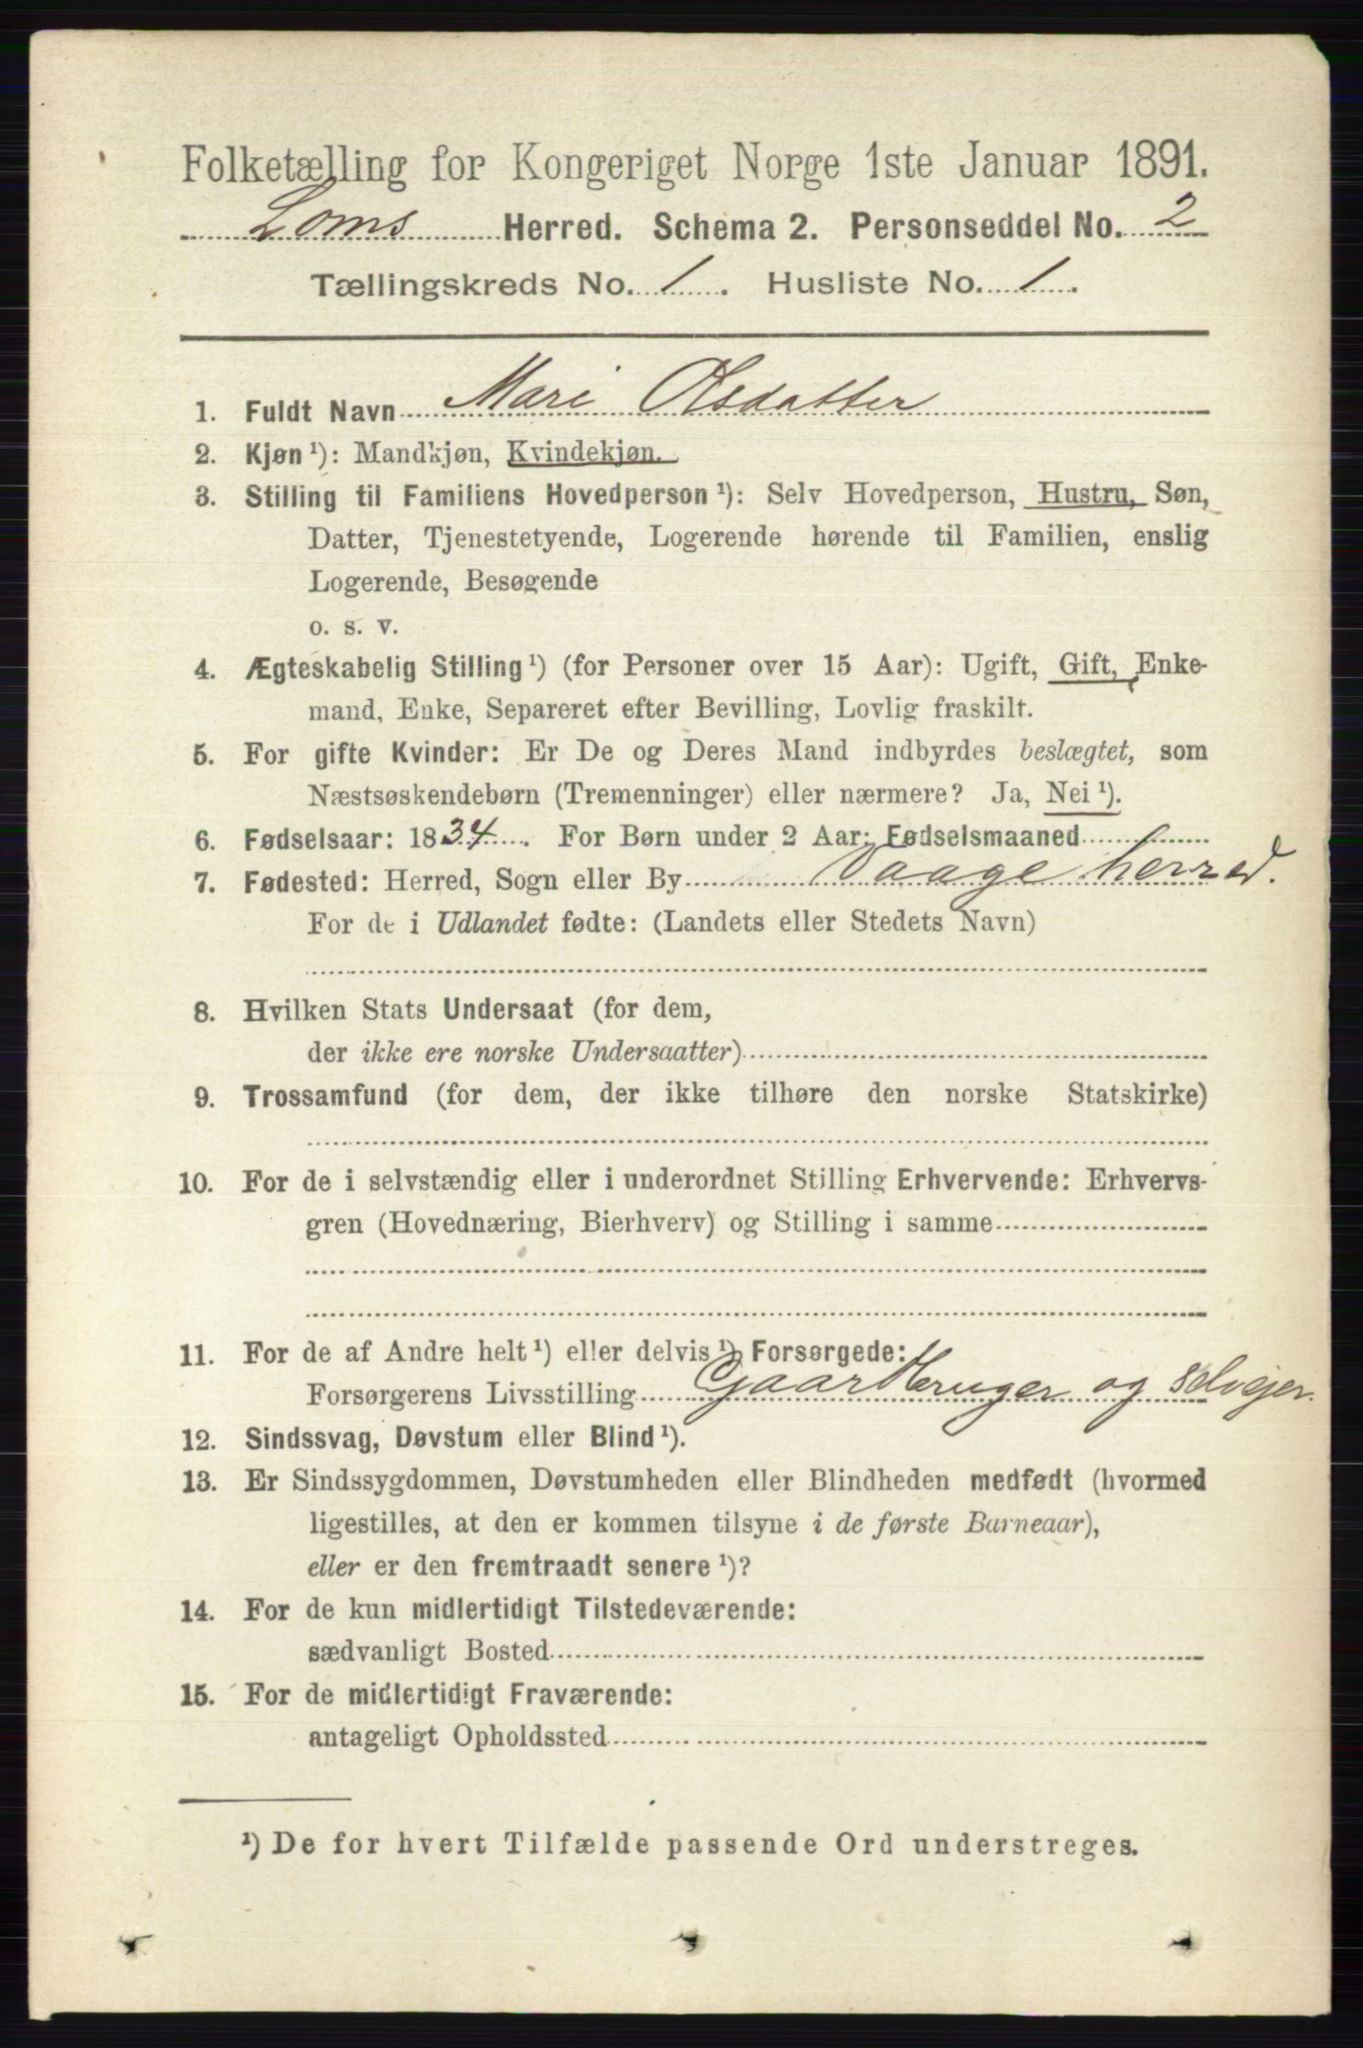 Folketælling for Kongeriget Norge 1ste Januar 1891.
Loms Herred. Schema 2. Personseddel No. 2
Tællingskreds No. 1. Husliste No. 1.
1. Fuldt Navn Mari Olsdatter
2. Kjøn ¹): Mandkjøn, Kvindekjøn.
3. Stilling til Familiens Hovedperson ¹): Selv Hovedperson, Hustru, Søn,
Datter, Tjenestetyende, Logerende hørende til Familien, enslig
Logerende, Besøgende
o. s. v.
4. Ægteskabelig Stilling ¹) (for Personer over 15 Aar): Ugift, Gift, Enke-
mand, Enke, Separeret efter Bevilling, Lovlig fraskilt.
5. For gifte Kvinder: Er De og Deres Mand indbyrdes beslægtet, som
Næstsøskendebørn (Tremenninger) eller nærmere? Ja, Nei ¹).
6. Fødselsaar: 1834. For Børn under 2 Aar: Fødselsmaaned
7. Fødested: Herred, Sogn eller By Vaage herred.
For de i Udlandet fødte: (Landets eller Stedets Navn)
8. Hvilken Stats Undersaat (for dem,
der ikke ere norske Undersaatter)
9. Trossamfund (for dem, der ikke tilhøre den norske Statskirke)
10. For de i selvstændig eller i underordnet Stilling Erhvervende: Erhvervs-
gren (Hovednæring, Bierhverv) og Stilling i samme
11. For de af Andre helt ¹) eller delvis ¹) Forsørgede:
Forsørgerens Livsstilling Gaardbruger og Selvejer.
12. Sindssvag, Døvstum eller Blind ¹).
13. Er Sindssygdommen, Døvstumheden eller Blindheden medfødt (hvormed
ligestilles, at den er kommen tilsyne i de første Barneaar),
eller er den fremtraadt senere ¹)?
14. For de kun midlertidigt Tilstedeværende:
sædvanligt Bosted
15. For de midlertidigt Fraværende:
antageligt Opholdssted
¹) De for hvert Tilfælde passende Ord understreges.